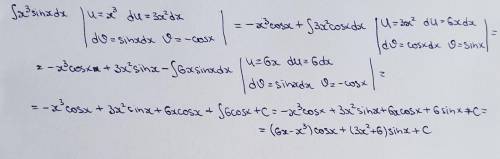 ∫x³sinxdx | u=x³ du=3x²dx | dv=sinxdx v=-cosx | = -x³cosx + ∫3x²cosxdx | u=3x² du=6xdx | dv=cosxdx v=sinx | =
= -x³cosx + 3x²sinx - ∫6xsinxdx | u=6x du=6dx | dv=sinxdx v=-cosx | =
= -x³cosx + 3x²sinx + 6xcosx + ∫6cosx + C = -x³cosx + 3x²sinx + 6xcosx + 6sinx + C =
= (6x-x³)cosx + (3x²+6)sinx + C